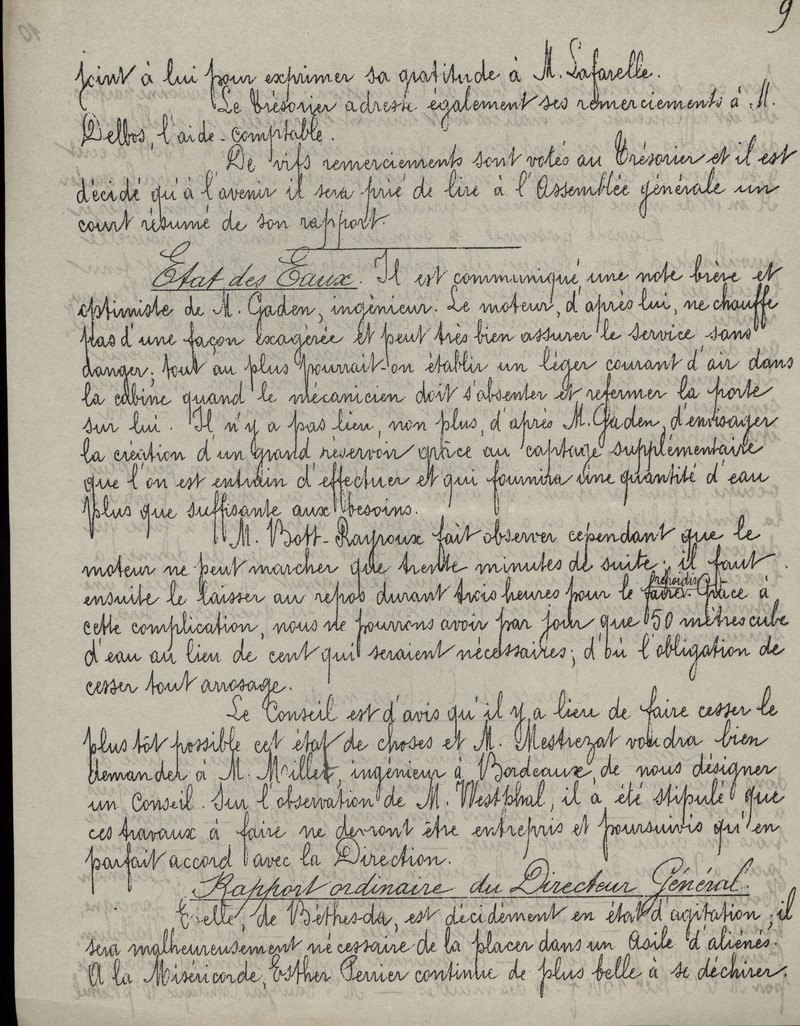 9
joint à lui pour exprimer sa gratitude à M. Lafarelle.
Le Trésorier adresse également ses remerciements à M.
Delbos, l'aide-comptable.
De vifs remerciements sont votés au Trésorier et il est
décidé qu'à l'avenir il sera prié de lire à l'Assemblée générale un
court résumé de son rapport.
Etat des Eaux. Il est communiqué une note brève et
optimiste de M. Gaden, ingénieur. Le moteur, d'après lui, ne chauffe
pas d'une façon exagérée et peut très bien assurer le service sans
danger; tout au plus pourrait-on établir un léger courant d'air dans
la cabine quand le mécanicien doit s'absenter et refermer la porte
sur lui. Il n'y a pas lieu, non plus, d'après M. Gaden, d'envisager
la création d'un grand réservoir grâce au captage supplémentaire
que l'on est entrain d'effectuer et qui fournira une quantité d'eau
plus que suffisante aux besoins.
M. Bott-Rayroux fait observer cependant que le
moteur ne peut marcher que trente minutes de suite; il faut
ensuite le laisser au repos durant trois heures pour le refroidir. Grâce à
cette complication, nous ne pourrons avoir par jour que 50 mètres cube
d'eau au lieu de cent qui seraient nécessaires; d'où l'obligation de
cesser tout arrosage.
Le Conseil est d'avis qu'il y a lieu de faire cesser le
plus tôt possible cet état de choses et M. Mestrezat voudra bien
demander à M. Millet, ingénieur à Bordeaux, de nous désigner
un Conseil. Sur l'observation de M. Westphal, il a été stipulé que
ces travaux à faire ne devront être entrepris et poursuivis qu'en
parfait accord avec la Direction.
Rapport ordinaire du Directeur Général.
de Béthesda, est décidément en état d'agitation; il
sera malheureusement nécessaire de la placer dans un Asile d'aliénés.
A la Miséricorde, Esther Perrier continue de plus belle à se déchirer.